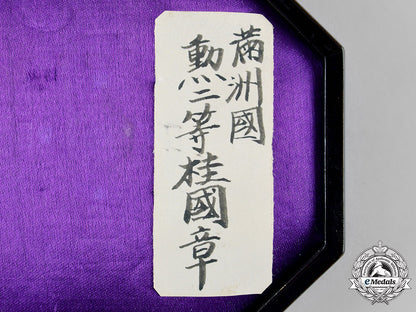 満洲國
勲二等桂國章
eMedals